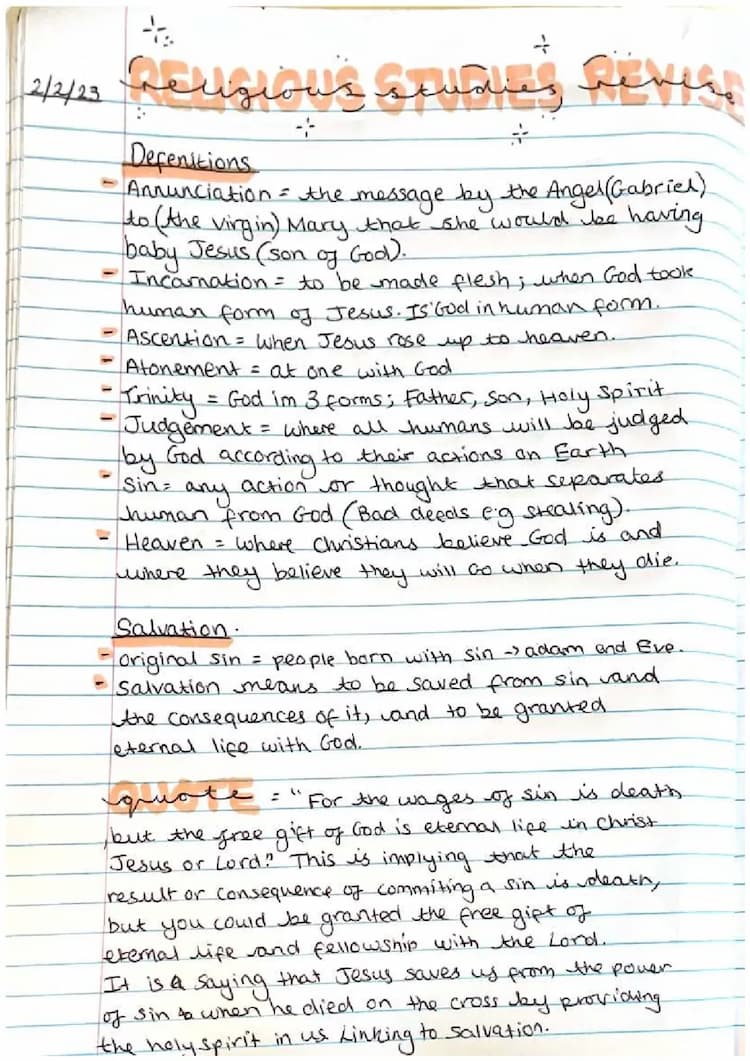 2/2/23
RELIGIOUS STUDIES REVISE
religious studies, revise
Defenitions
- Annunciation = the message by the Angel (Gabriel)
to (the virgin) Mary that she would be having
baby Jesus (son of God).
- Incarnation = to be made flesh; when God took
human form of Jesus. Is God in human form.
- Ascention = when Jesus rose up to heaven.
- Atonement = at one with God
- Trinity = God im 3 forms; Father, Son, Holy Spirit
- Judgement = where all humans will be judged
by God according to their actions on Earth
- Sin = any action or thought that separates
human from God (Bad deeds e.g stealing).
- Heaven = where Christians believe God is and
where they believe they will Go when they die.
Salvation.
- Original sin = people born with sin -> adam and Eve.
- Salvation means to be saved from sin and
the consequences of it, and to be granted
eternal life with God.
QUOTE
quote = "For the wages of sin is death
, but the free gift of God is eternal life in Christ
Jesus or Lord." This is implying that the
result or consequence of commiting a sin is death,
but you could be granted the free gift of
eternal life and fellowship with the Lord.
It is a saying that Jesus saves us from the power
of sin when he died on the cross by providing
the holy spirit in us Linking to salvation.